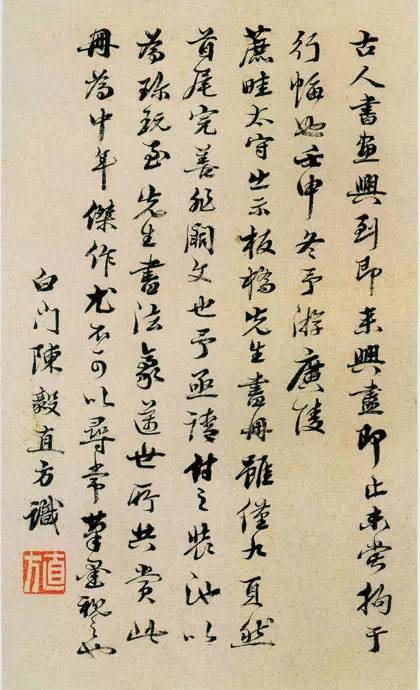 古人書畫興到即來興盡即止未嘗拘于
行幅也壬申冬予游廣陵
蔗畦太守出示板橋先生畫冊雖僅九頁然
首尾完善非闕文也予亟請付之裝池以
為珍玩至先生書法豪邁世所共賞此
冊為中年傑作尤不可以尋常筆墨視之也
白門陳毅直方識
直方